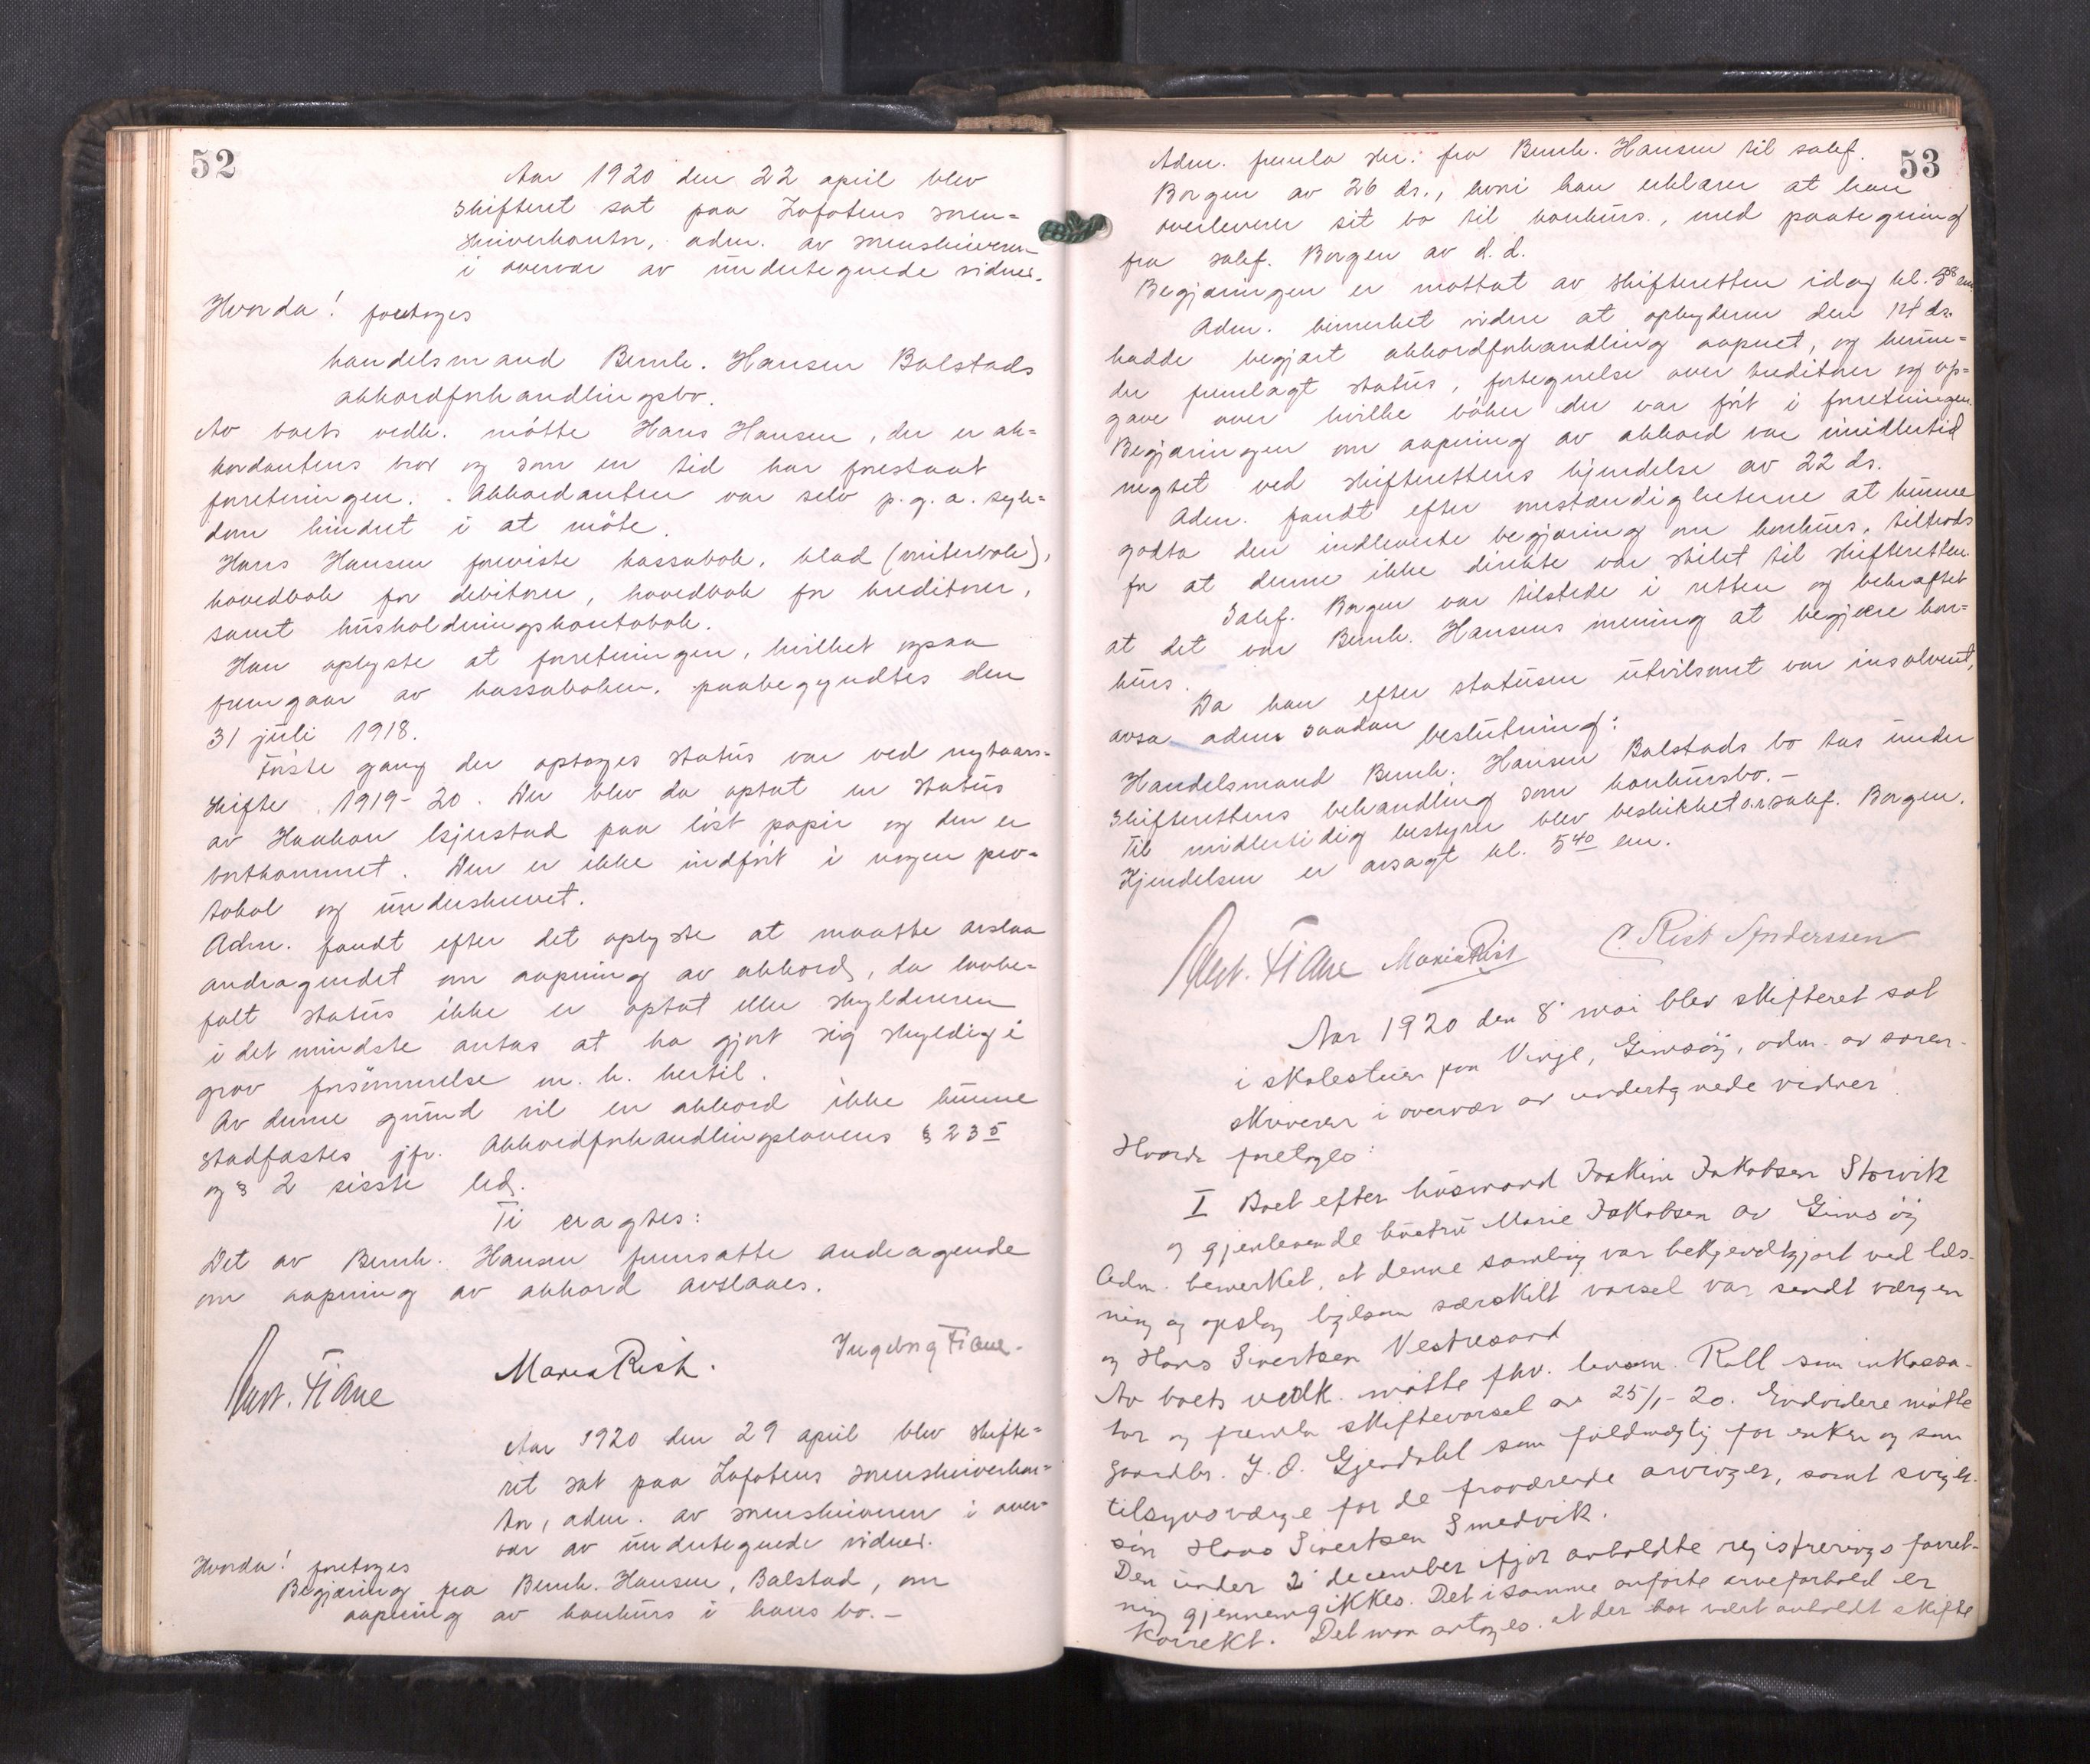 52
Aar 1920 den 22 april blev
skifteret sat paa Lofotens soren=
skriverkontor, adm. av sorenskriveren
i overvær av undertegnede vidner.
Hvorda! foretoges
handelsmand Bernh. Hansen Balstads
akkordforhandlingsbo.
Av boets vedk. møtte Hans Hansen, der er ak=
kordantens bror og som en tid har forestaat
forretningen. Akkordanten var selv p.g.a. syk=
dom hindret i at møte.
Hans Hansen foreviste kassabok, klad (miterbok),
hovedbok for debitorer, hovedbok for kreditorer,
samt husholdningskontobok.
Han oplyste at forretningen, hvilket ogsaa
fremgaar av kassaboken, paabegyndtes den
31 juli 1918.
Første gang der optoges status var ved nytaars-
skifte 1919-20. Der blev da optat en status
av Haakon Kjerstad paa løst papir og den er
bortkommet. Den er ikke indført i nogen pro-
tokol og underskrevet.
Adm. fandt efter det oplyste at maatte avslaa
andragendet om aapning av akkord, da lovbe-
falt status ikke er optat eller skyldneren
i det mindste antas at ha gjort sig skyldig i
grov forsømmelse m. h. hertil.
Av denne grund vil en akkord ikke kunne
stadfæstes jfr. Akkordforhandlingslovens § 23 5
og § 2 sisste led.
Ti eragtes:
Det av Bernh. Hansen fremsatte andragende
om aapning av akkord avslaaes.
Fiane Maria Rist. Ingeborg Fiane.
Aar 1920 den 29 april blev skifte=
ret sat paa Lofotens sorenskriverkon=
tor, adm. av sorenskriveren i over=
vær av undertegnede vidner.
Hvorda! foretoges
Begjæring fra Bernh. Hansen, Balstad, om
aapning av konkurs i hans bo. —
53
Adm. fremla skr. fra Bernh. Hansen til sakf.
Borgen av 26 ds., hvori han erklærer at han
overleverer sit bo til konkurs, med paategning
fra sakf. Borgen av d. d.
Begjæringen er mottat av skifteretten idag kl. 5
Adm. bemerket videre at opbyderen den 14 ds.
hadde begjært akkordforhandling aapnet, og herun=
der fremlagt status, fortegnelse over kreditorer og op=
gave over hvilke bøker der var ført i forretningen.
Begjæringen om aapning av akkord var imidlertid
negtet ved skifterettens kjendelse av 22 ds.
Adm. fandt efter omstændigheterne at kunne
godta den indleverte begjæring om konkurs, tiltrods
for at denne ikke direkte var stilet til skifteretten.
Sakf. Borgen var tilstede i retten og bekræftet
at det var Bernh. Hansens mening at begjære kon=
kurs.
Da han efter statusen utvilsomt var insolvent,
avsa adm. saadan beslutning:
Handelsmand Bernh. Hansen Balstads bo tas under
skifterettens behandling som konkursbo. —
Til midlertidig bestyrer blev beskikket o.r.sakf. Borgen.
Kjendelsen er avsagt kl. 5 40 em.
Fiane Maria Rist Rist Anderssen
Aar 1920 den 8 mai blev skifteret sat
i skolestuen paa Vinje, Gimsøy, adm. av soren-
skriveren i overvær av undertegnede vidner
Hvorda foretoges:
I Boet efter husmand Joakim Jakobsen Storvik
og gjenlevende hustru Marie Jakobsen av Gimsøy
Adm. bemerket, at denne samling var bekjendtgjort ved læs-
ning og opslag likesom særskilt varsel var sendt værgen
og Hans Sivertsen Vestresand
Av boets vedk. møtte fhv. lensm. Roll som inkassa-
tor og fremla skiftevarsel av 25/1-20. Endvidere møtte
gaardbr. J. O. Gjerdahl som fuldmægtig for enken og som
tilsynsværge for de fraværende arvinger, samt sviger-
søn Hans Sivertsen Smedvik.
Den under 2 december ifjor avholdte registreringsforret-
ning gjennemgikkes. Det i samme anførte arveforhold er
korrekt. Det maa antages at der har vært avholdt skifte